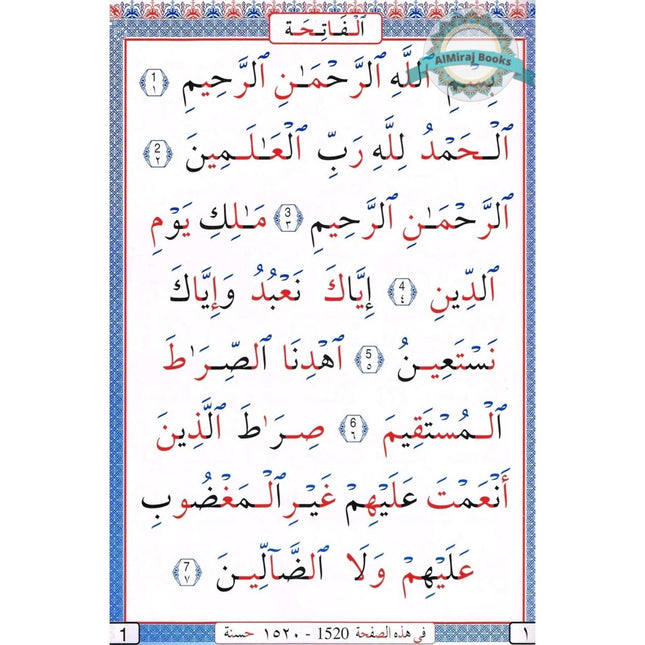 ٱلْفَاتِحَة
AlMiraj Books
بِسْمِ ٱللَّهِ ٱلرَّحْمَـٰنِ ٱلرَّحِيمِ 1 ١
ٱلْحَمْدُ لِلَّهِ رَبِّ ٱلْعَـٰلَمِينَ 2 ٢
ٱلرَّحْمَـٰنِ ٱلرَّحِيمِ 3 ٣ مَـٰلِكِ يَوْمِ
ٱلدِّينِ 4 ٤ إِيَّاكَ نَعْبُدُ وَإِيَّاكَ
نَسْتَعِينُ 5 ٥ ٱهْدِنَا ٱلصِّرَٰطَ
ٱلْمُسْتَقِيمَ 6 ٦ صِرَٰطَ ٱلَّذِينَ
أَنْعَمْتَ عَلَيْهِمْ غَيْرِ ٱلْمَغْضُوبِ
عَلَيْهِمْ وَلَا ٱلضَّآلِّينَ 7 ٧
١ في هذه الصفحة 1520 - ١٥٢٠ حسنة 1